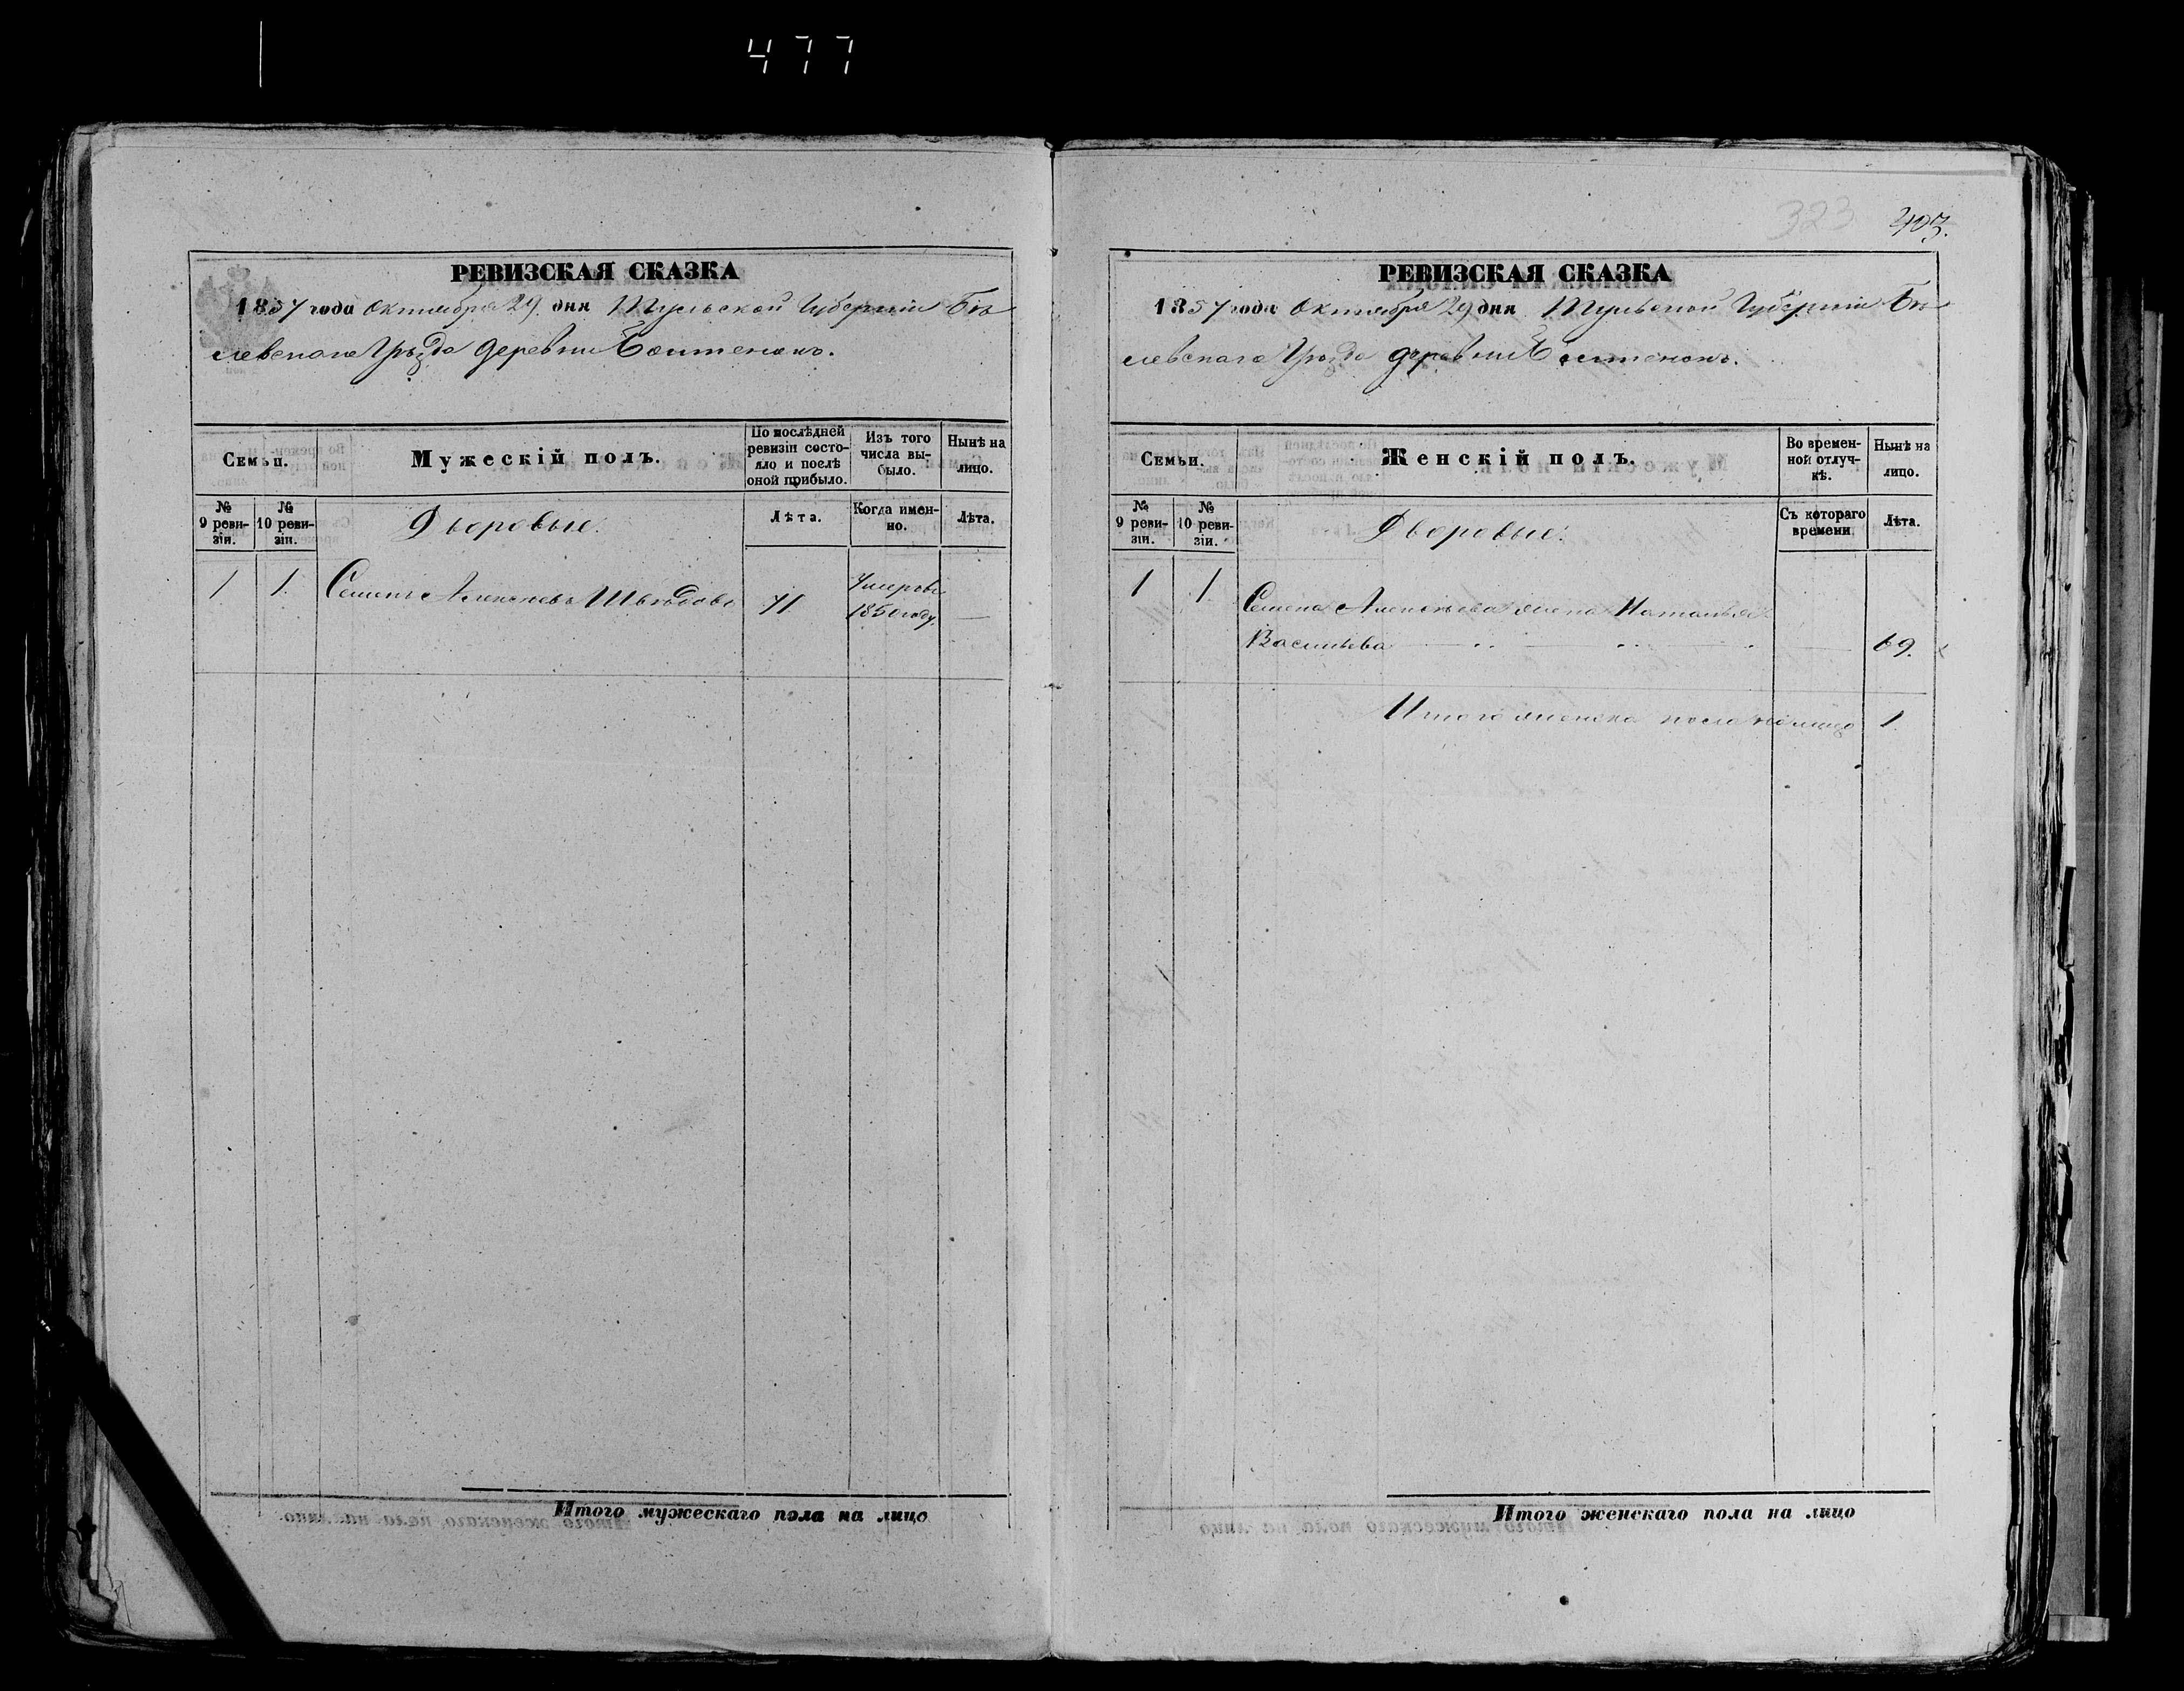 477
РЕВИЗСКАЯ СКАЗКА
1857 года Октября 29. дня Тульской Губерніи Бѣ
левскаго Уѣзда деревни
Семьи.
Мужескій полъ.
По послѣдней ревизіи состояло и послѣ оной прибыло.
Изъ того числа выбыло.
Нынѣ на лицо.
№ 9 ревизіи.
№ 10 ревизіи.
Дворовые:
Лѣта.
Когда именно.
Лѣта.
1 1. Семенъ Алексѣевъ Шведовъ 71 Умеръ въ 1850 году. —
Итого мужескаго пола на лицо
323 403.
РЕВИЗСКАЯ СКАЗКА
1857 года Октября 29 дня Тульской Губерніи Бѣ
левскаго Уѣзда деревни
Семьи.
Женскій полъ.
Во временной отлучкѣ.
Нынѣ на лицо.
№ 9 ревизіи.
№ 10 ревизіи.
Дворовые:
Съ котораго времени
Лѣта.
1 1 Семена Алексѣева жена Наталья
Васильева — — — 69.
Итого женска пола на лицо 1.
Итого женскаго пола на лицо